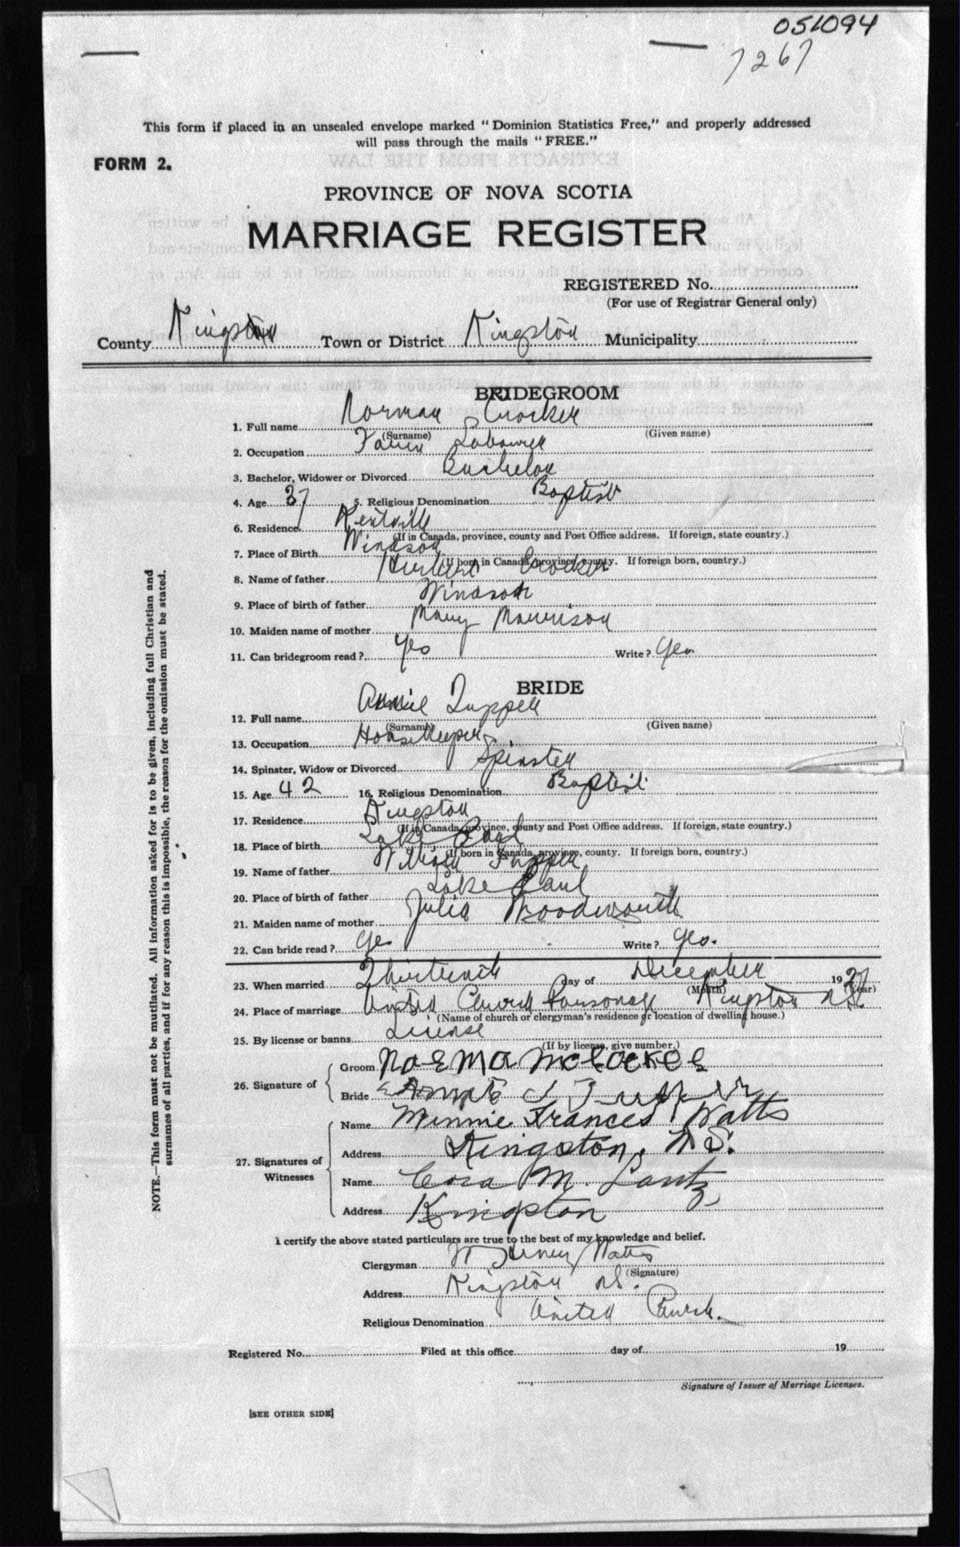 051094
7267
This form if placed in an unsealed envelope marked "Dominion Statistics Free," and properly addressed
will pass through the mails "FREE."
FORM 2.
PROVINCE OF NOVA SCOTIA
MARRIAGE REGISTER
REGISTERED No.
(For use of Registrar General only)
County Kingston Town or District Kingston Municipality
BRIDEGROOM
1. Full name Norman Crocker
(Surname) (Given name)
2. Occupation Labourer
3. Bachelor, Widower or Divorced Bachelor
4. Age 37 5. Religious Denomination Baptist
6. Residence Kentville
(If in Canada, province, county and Post Office address. If foreign, state country.)
7. Place of Birth Windsor
(If born in Canada, province, county. If foreign born, country.)
8. Name of father Crocker
9. Place of birth of father Windsor
10. Maiden name of mother Mary Morrison
11. Can bridegroom read? Yes Write? Yes
BRIDE
12. Full name Annie Tupper
(Surname) (Given name)
13. Occupation Housekeeper
14. Spinster, Widow or Divorced Spinster
15. Age 42 16. Religious Denomination Baptist
17. Residence Kingston
(If in Canada, province, county and Post Office address. If foreign, state country.)
18. Place of birth Lake Paul
(If born in Canada, province, county. If foreign born, country.)
19. Name of father William Tupper
20. Place of birth of father Lake Paul
21. Maiden name of mother Julia Woodworth
22. Can bride read? Yes Write? Yes.
23. When married Thirteenth day of December 19
(Month) (Year)
24. Place of marriage United Church Parsonage Kingston N.S.
(Name of church or clergyman's residence or location of dwelling house.)
25. By license or banns License
(If by license, give number.)
26. Signature of
Groom
Bride
27. Signatures of Witnesses
Name Minnie Frances Watts
Address Kingston, N.S.
Name Cora M. Lantz
Address Kingston
I certify the above stated particulars are true to the best of my knowledge and belief.
Clergyman Watts
(Signature)
Address Kingston N.S.
Religious Denomination United Church.
Registered No. Filed at this office day of 19
Signature of Issuer of Marriage Licenses.
[SEE OTHER SIDE]
NOTE.—This form must not be mutilated. All information asked for is to be given, including full Christian and
surnames of all parties, and if for any reason this is impossible, the reason for the omission must be stated.